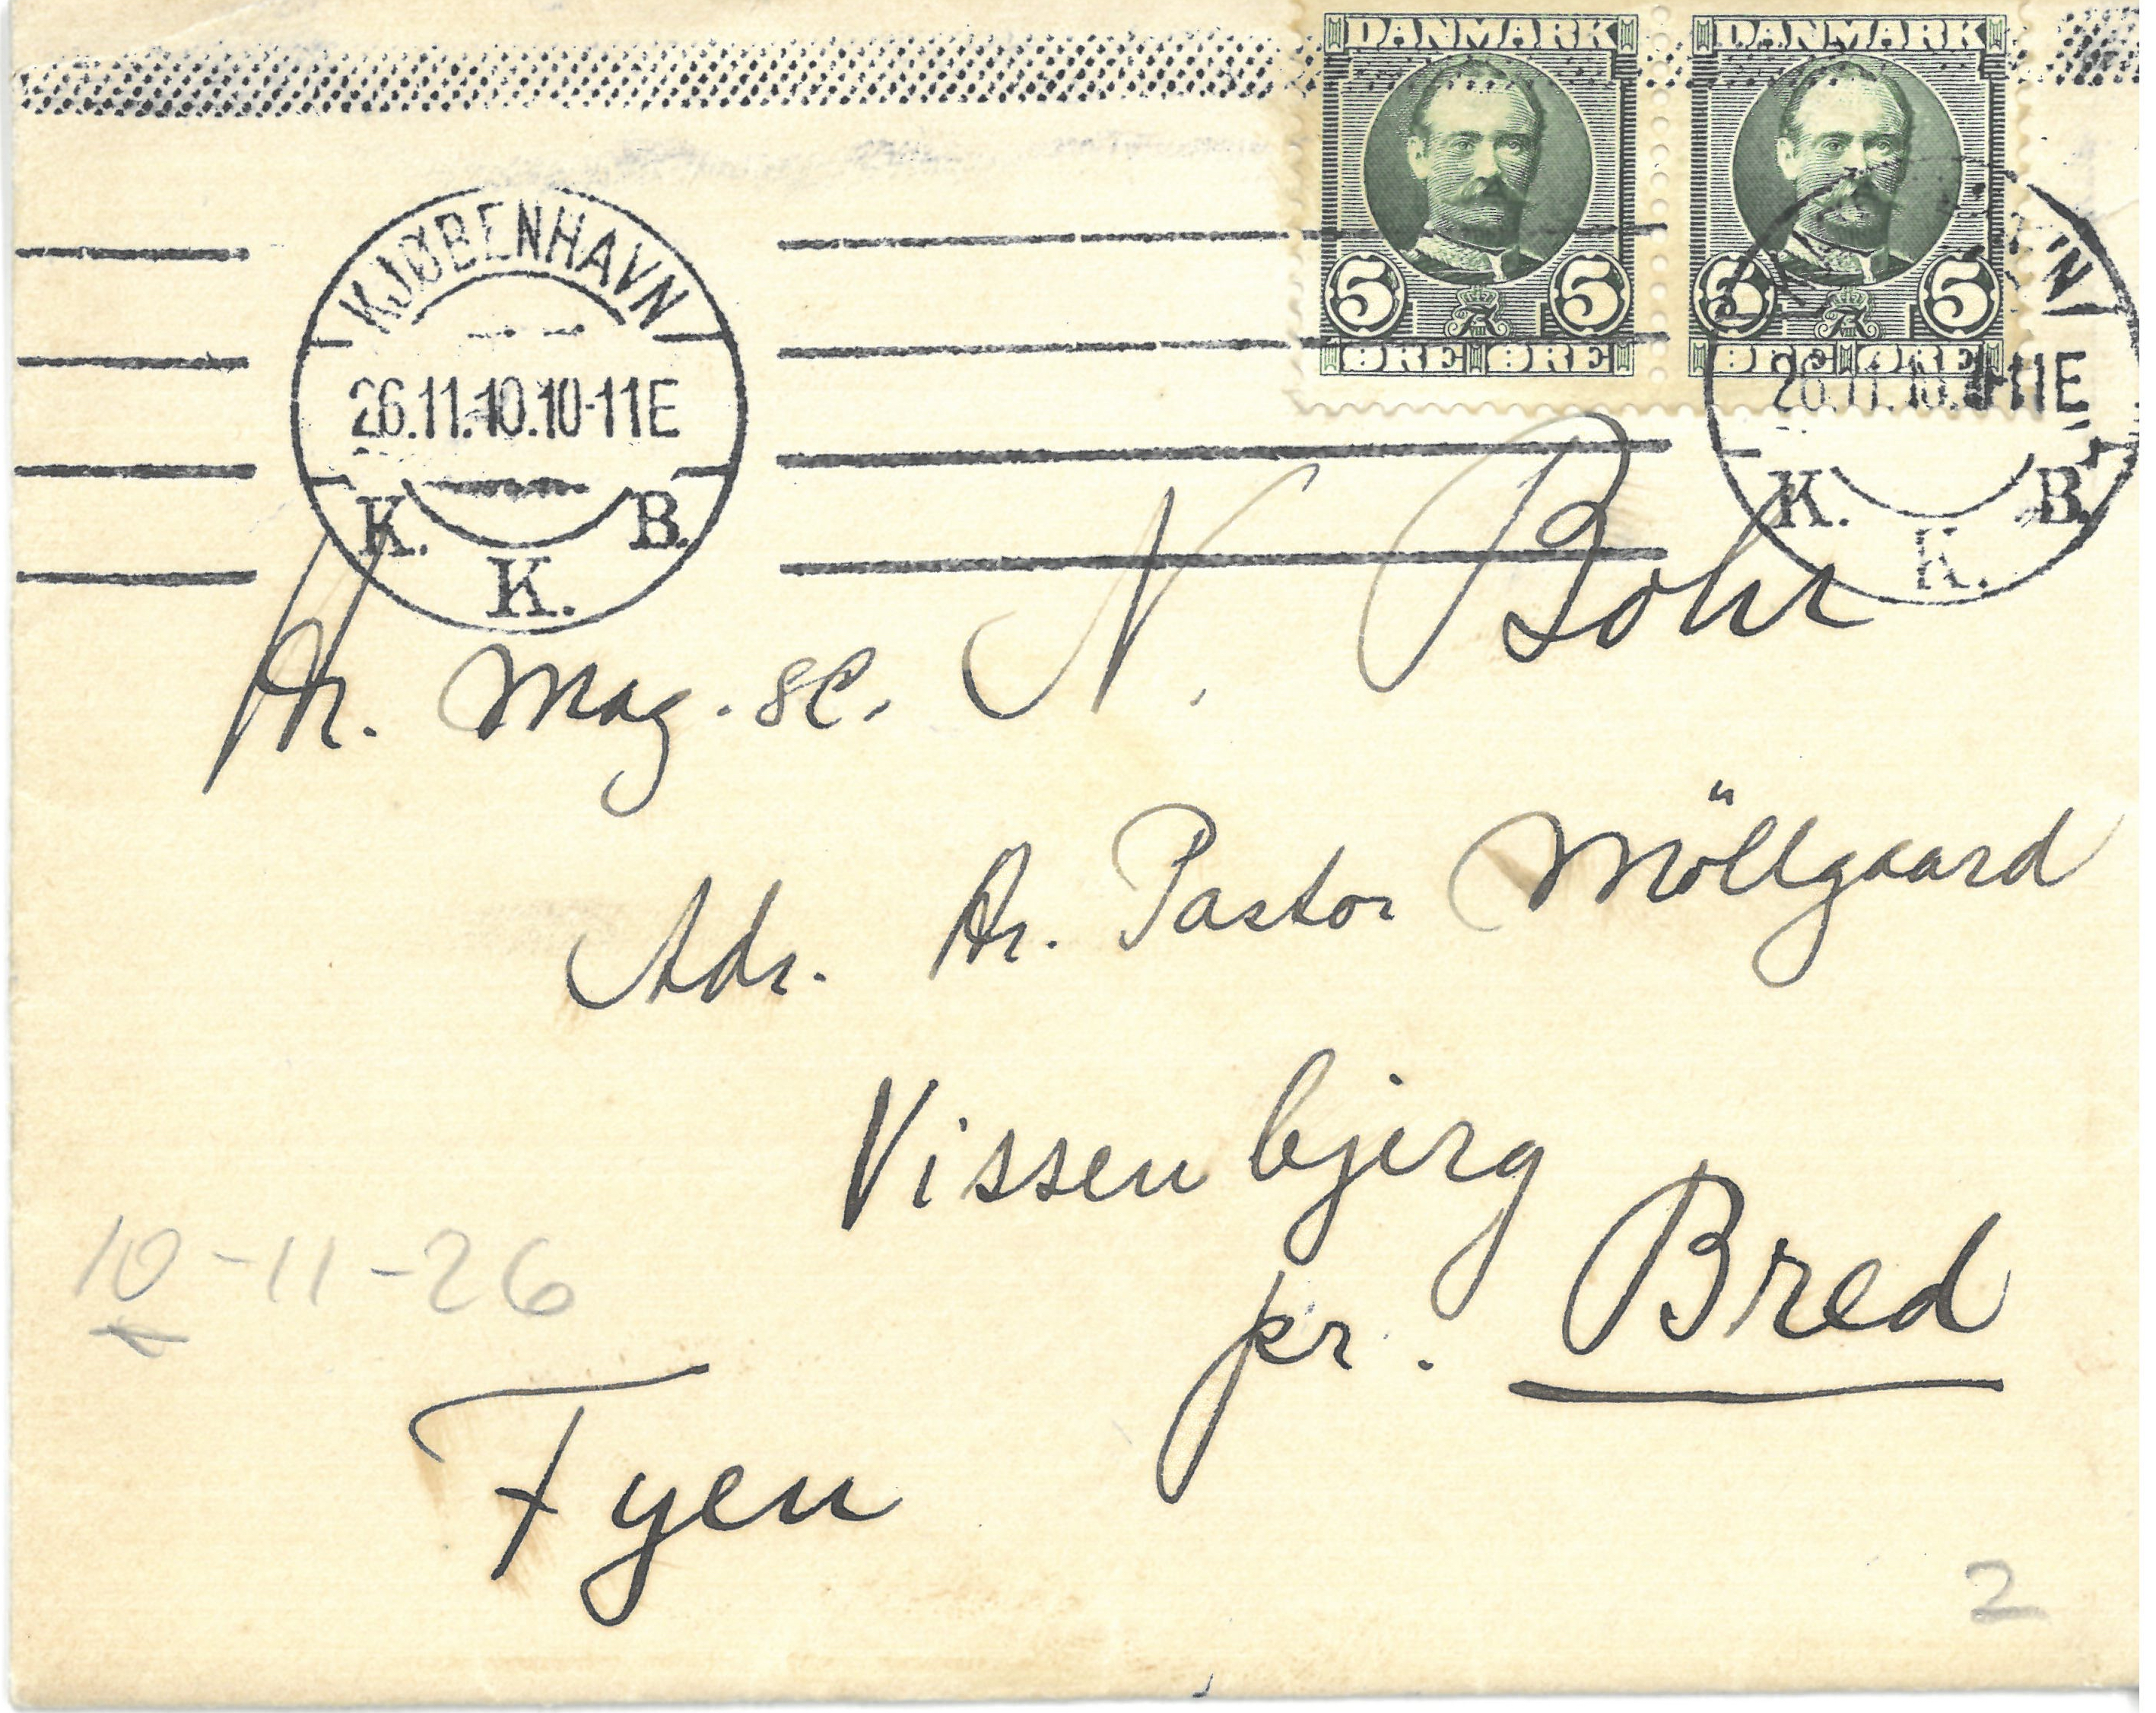 DANMARK DANMARK
5 5 5 5
ØRE ØRE ØRE ØRE
KJØBENHAVN
26.11.10.10-11E
K. K. B.
11E
K. K. B.
Hr. Mag. sc. N. Bohr
Adr. Hr. Pastor Möllgaard
Vissenbjerg
pr. Bred
10-11-26
Fyen
2